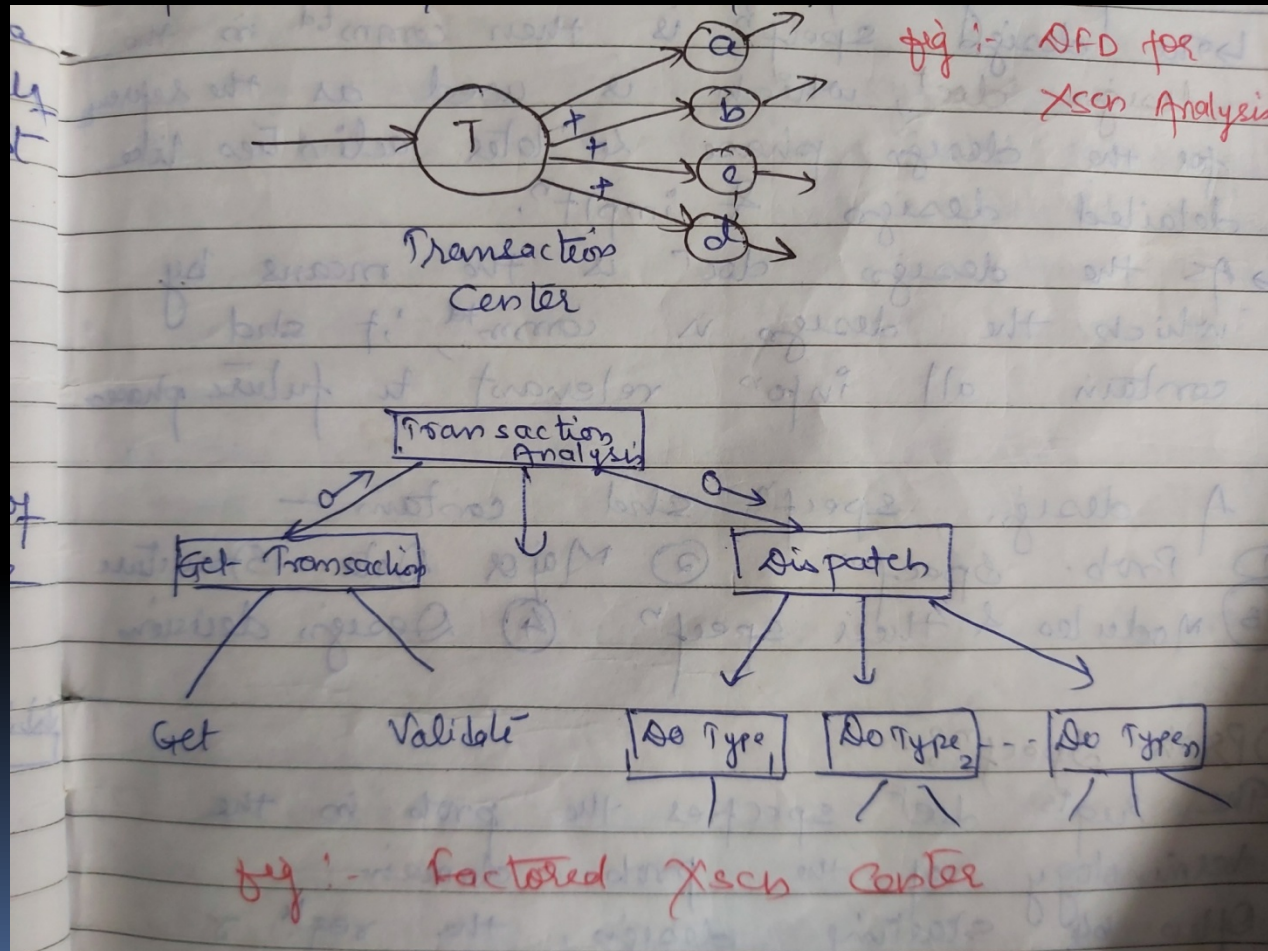 fig :- DFD for
Xscn Analysis
a
b
c
d
T
+
+
+
Transaction
Center
Transaction
Analysis
Get Transaction
Dispatch
Get
Validate
Do Type1
Do Type2
---
Do Typen
fig :- Factored Xscn Center